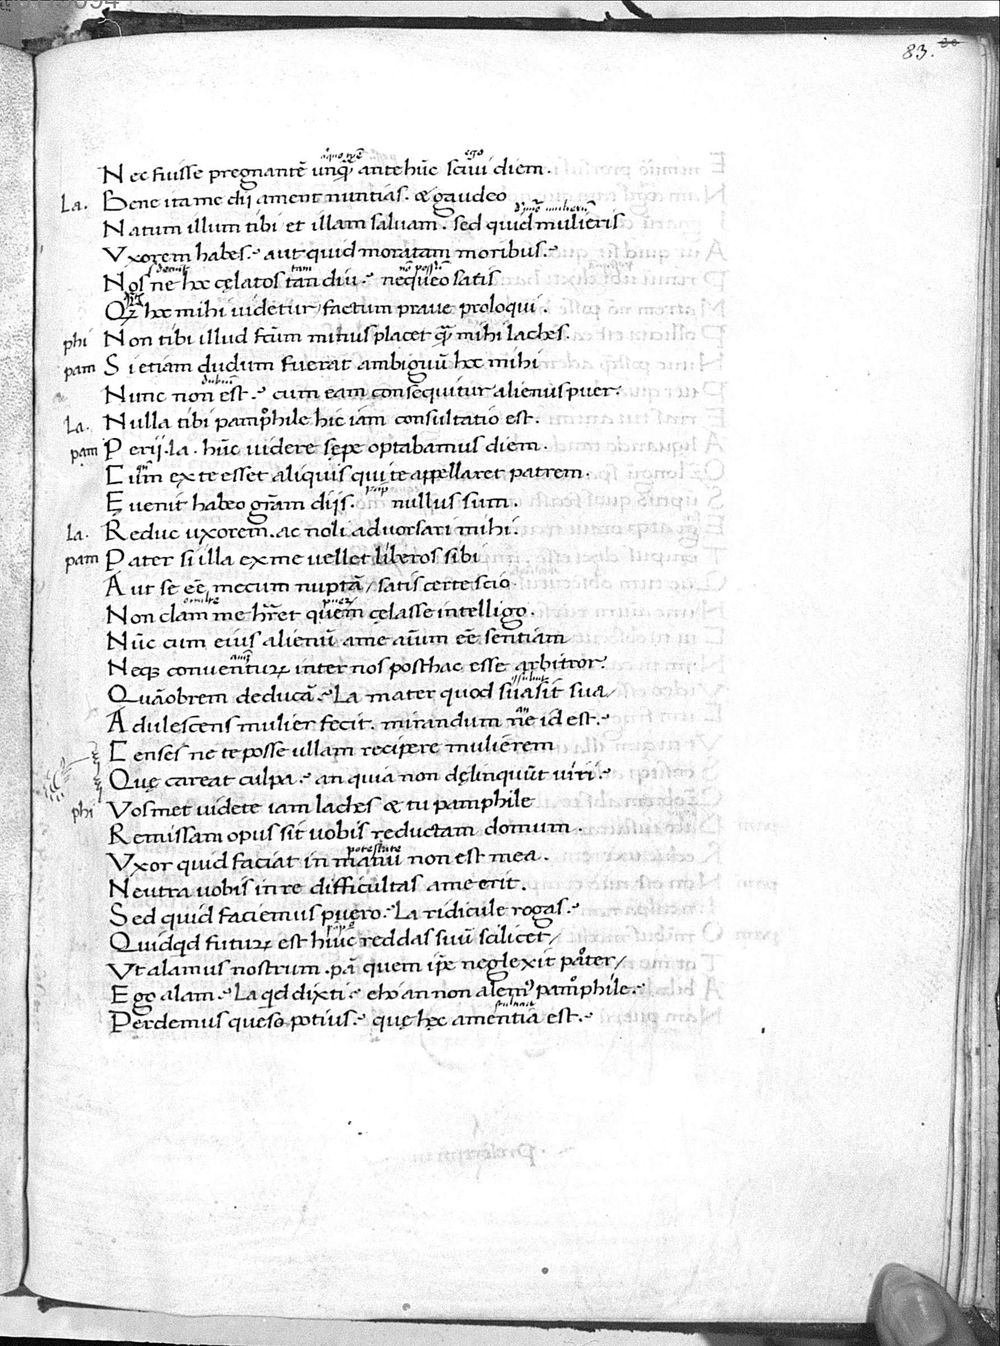 83.
Nec fuisse pregnantē unq̄ ante hūc sciui diem.
La. Bene ita me dij ament nuntias. & gaudeo
Natum illum tibi et illam saluam. sed quid mulieris
Vxorem habes. aut quid moratam moribus.
Nos ne hoc cęlatos tandiu. nequeo satis
hoc mihi uidetur/ factum praue proloqui.
phi Non tibi illud fc̄um minus placet q̄ mihi laches.
pam Si etiam dudum fuerat ambiguū hoc mihi
Nunc non est. cum eam consequitur alienus puer.
La. Nulla tibi pamphile hic iam consultatio est.
pam Perij. la. hūc uidere sępe optabamus diem.
Cum ex te esset aliquis qui te appellaret patrem.
Euenit habeo gr̄am dijs. nullus sum.
La. Reduc uxorem. ac noli aduorsari mihi.
pam Pater si illa ex me uellet liberos sibi
Aut se eē mecum nuptā/ satis certe scio
Non clam me hr̄et quem cęlasse intelligo.
Nūc cum eius alienū a me aīum eē sentiam
Neq; conuenturꝝ inter nos posthac esse arbitror.
Quāobrem deducā. La mater quod suasit sua/
Adulescens mulier fecit. mirandum ne id est.
Censes ne te posse ullam recipere mulierem
Quę careat culpa. an quia non dęlinquūt uiri.
phi Vosmet uidete iam laches & tu pamphile
Remissam opus sit uobis reductam domum.
potestate
Vxor quid faciat in manu non est mea.
Neutra uobis in re difficultas a me erit.
Sed quid faciemus puero. La ridicule rogas.
Quidqd futurꝝ est huic reddas suū scilicet/
Vt alamus nostrum. pā quem ip̄e neglexit pater/
Ego alam. La qd dixti. eho an non alemꝰ pamphile.
Perdemus queso potius. quę hęc amentia est.